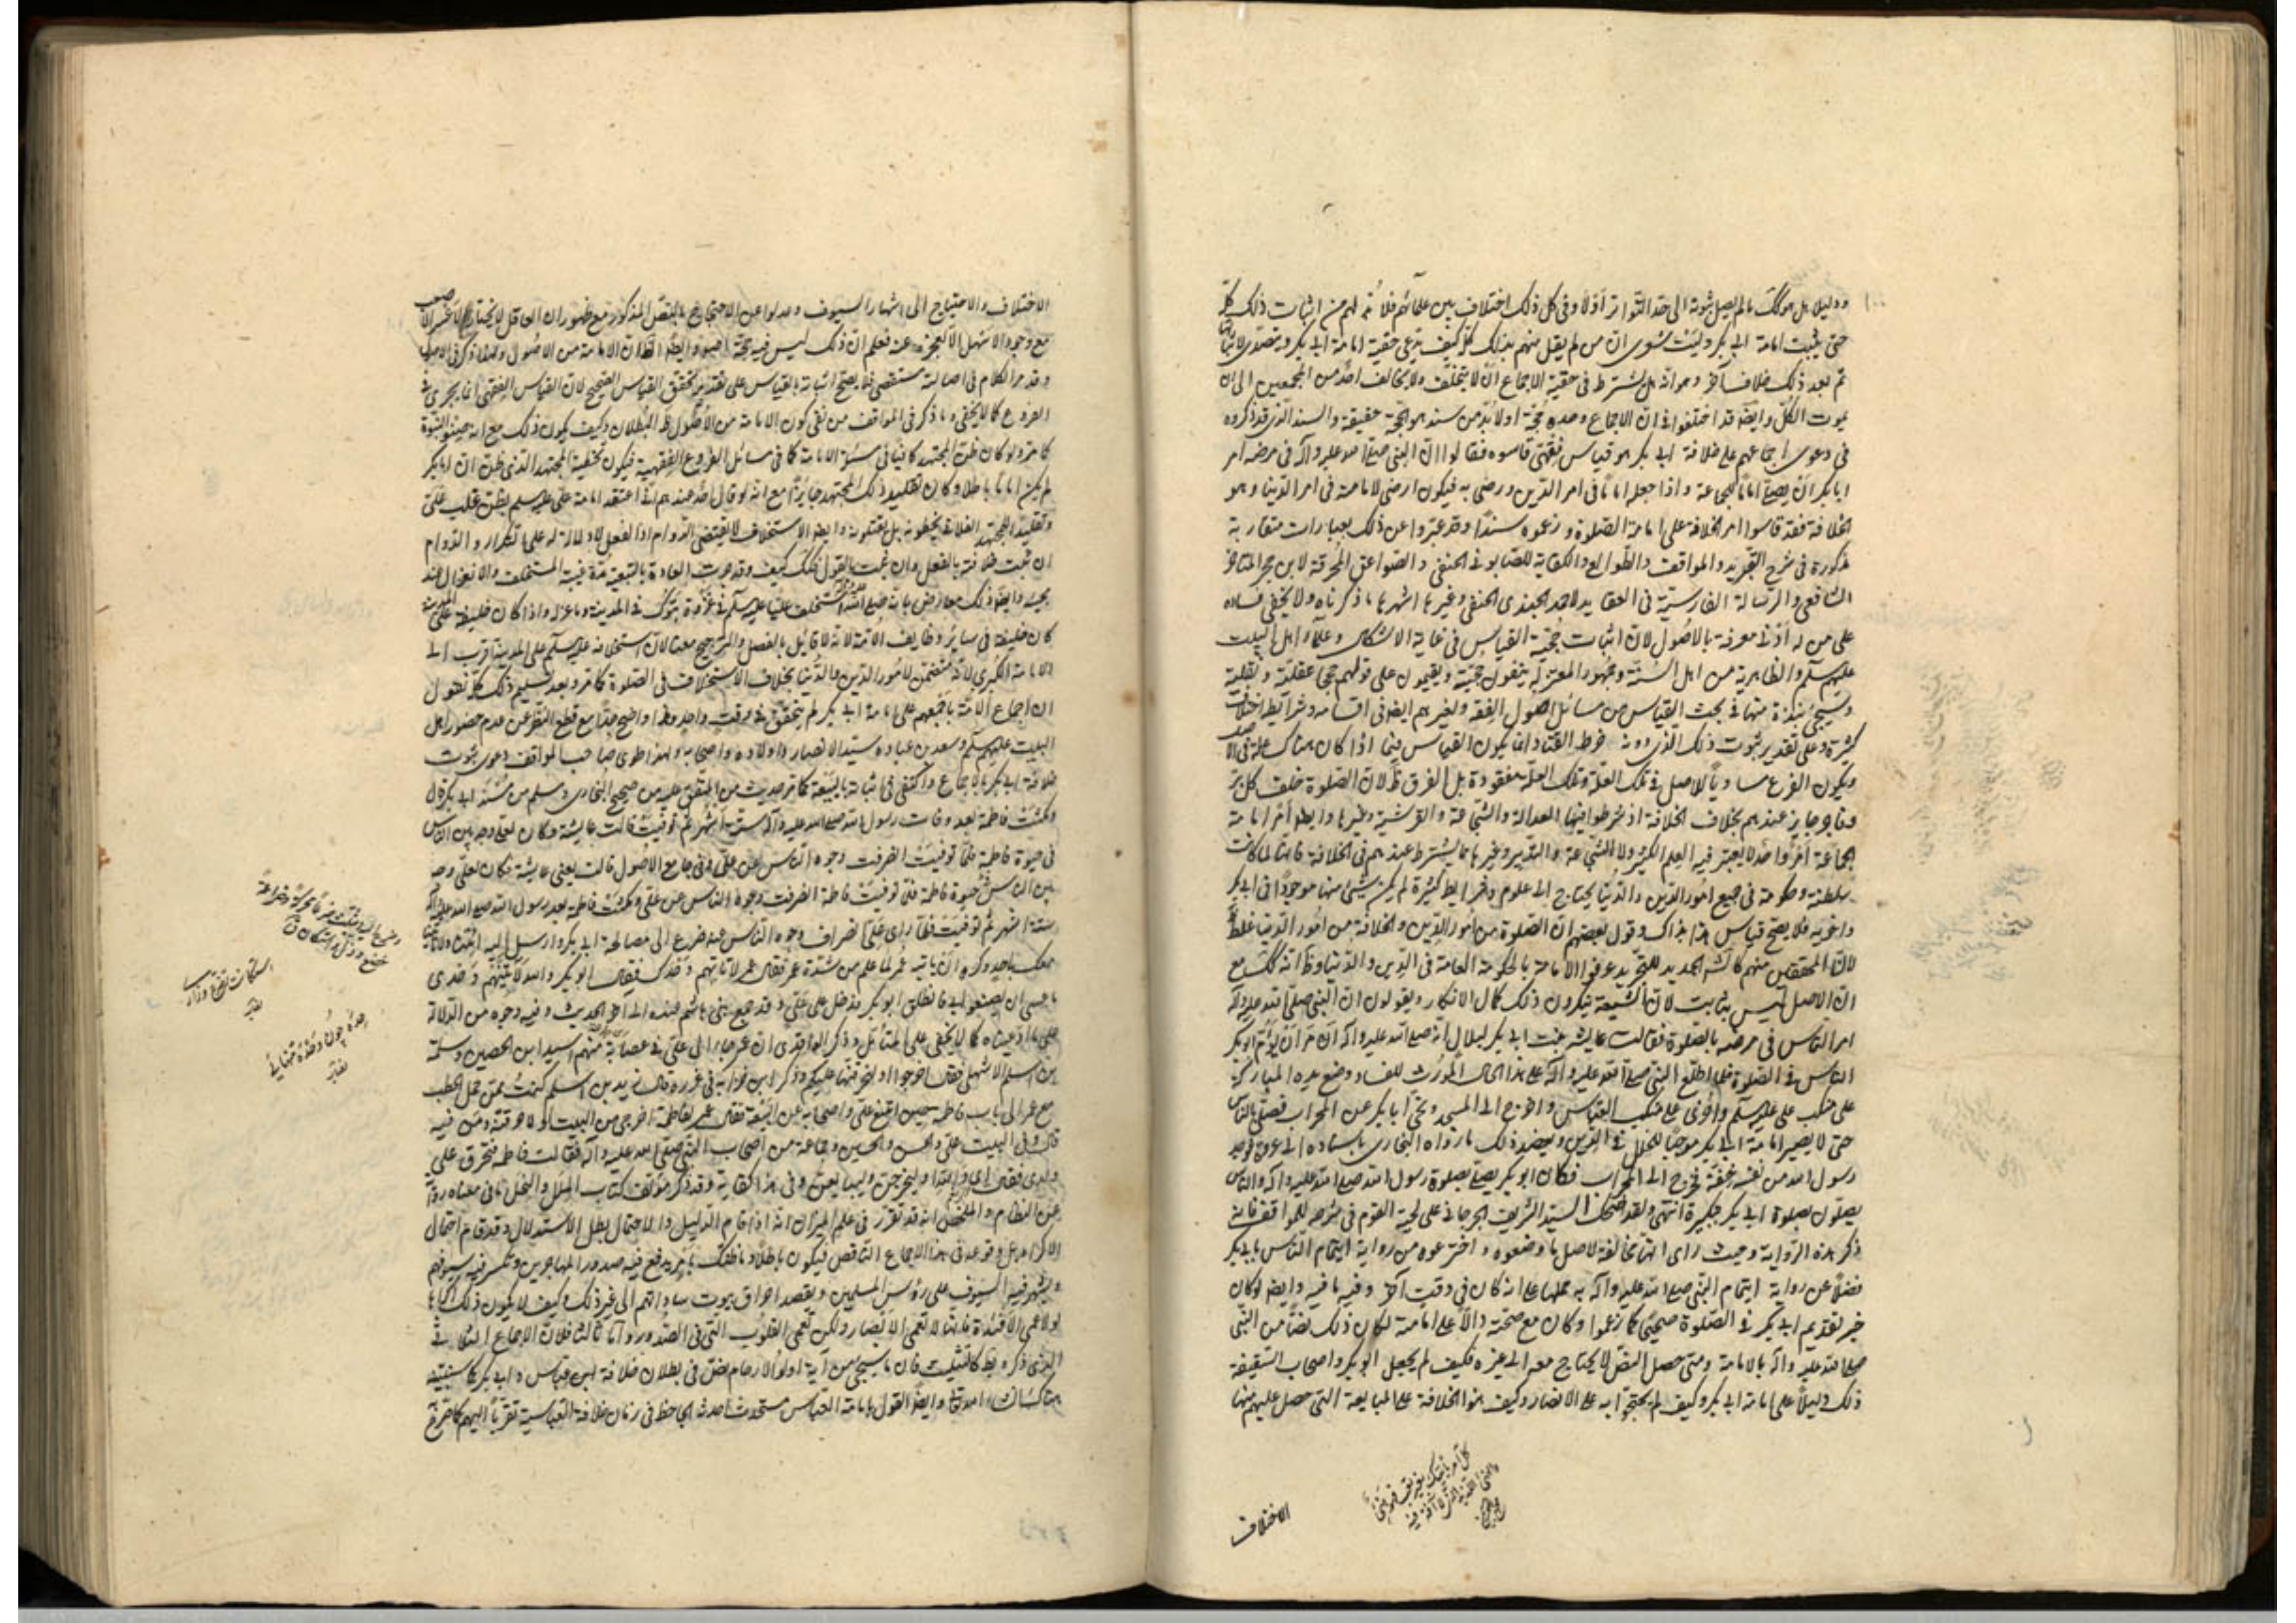 ودليلا بل هو كك ما لم يصل ثبوته الى حد التواتر أوّلا وفي كل ذلك اختلاف بين علمائهم فلا بُدّ لهم من اثبات ذلك كلّه
حتى يثبت امامة ابي بكر وليت شعرى ان من لم يقل منهم بذلك كلّه كيف يدّعى حقية امامة ابي بكر ويتصدى لاثباتها
ثم بعد ذلك خلاف آخر وهو انّه هل يشترط في حقية الاجماع ان لا يتخلّف ولا يخالف احدٌ من المجمعين الى ان
يموت الكلّ وايضًا قد اختلفوا في انّ الاجماع وحده حُجّة او لا بُدّ من سند هو الحجّة حقيقة والسند الّذى قد ذكروه
في دعوى اجماعهم على خلافة ابي بكر هو قياس فقهىّ قاسوه فقالوا انّ النبي صلّى الله عليه وآله في مرضه أمر
ابا بكر ان يصلّى اماماً للجماعة واذا جعله اماماً في امر الدّين ورضى به فيكون ارضى لامامته في امر الدّنيا وهو
الخلافة فقد قاسوا امر الخلافة على امامة الصّلوة وزعموه سندًا وقد عبّروا عن ذلك بعبارات متقاربة
مذكورة في شرح التّجريد والمواقف والطّوالع والكفاية للصّابونى الحنفى والصّواعق المُحرقة لابن حجر المتاخّر
الشافعى والرّسالة الفارسيّة في العقايد لاحمد الجندى الحنفى وغيرها اشهرها ما ذكرناه ولا يخفى فساده
على من له ادنى معرفة بالاصُول لانّ اثبات حُجّية القياس في غاية الاشكال وعلماء اهل البيت
عليهم السّلم والظّاهرية من اهل السُنّة وجمهور المعتزلة ينفون حجّيته ويقيمون على قولهم حججا عقليّة ونقلية
وسيجئ نبذة منها في بحث القياس من مسائل اصول الفقه ولغيرهم ايضا في اقسامه وشرايطه اختلافات
كثيرة وعلى تقدير ثبوت ذلك الذى دونه خرط القتاد انما يكون القياس فيما اذا كان هناك علة في الاصل
ويكون الفرع مساوياً للاصل في تلك العلّة وتلك العلّة مفقودة بل الفرق ظ لانّ الصّلوة خلف كل بَر
وفاجر جايز عندهم بخلاف الخلافة اذ شرطوا فيها العدالة والشّجاعة والقرشية وغيرها وايضا أمر امامة
الجماعة أمرٌ واحدٌ لا يعتبر فيه العلم الكثير ولا الشّجاعة والتدبير وغيرها مما يُشترط عندهم في الخلافة فانّها لما كانت
سلطنة وحكومة في جميع امُور الدّين والدّنيا يحتاج الى علوم وشرايط كثيرة لم يكن شيئ منها موجودًا في ابي بكر
واخويه فلا يصحّ قياس هذا بذاك وقول بعضهم انّ الصّلوة من امور الدّين والخلافة من امُور الدّنيا غلطٌ
لانّ المحققين منهم كالشّارح الجديد للتجريد عرفوا الامامة بالحكومة العامة في الدّين والدّنيا وظ انّه كك مع
انّ الاصل ليس بثابت لانّ الشّيعة ينكرون ذلك كمال الانكار ويقولون انّ النبي صلّى الله عليه وآله
امر النّاس في مرضه بالصّلوة فقالت عايشه بنت ابي بكر لبلال انّه صلى الله عليه وآله امر ان يؤمّ ابو بكر
النّاس في الصّلوة فلما اطّلع النبي صلى الله عليه وآله على هذا الحال المُورّث للفساد وضع يده المباركة
على منكب على عليه السلم واُخرى على منكب العبّاس واخرج الى المسجد ونحّى ابا بكر عن المحراب فصلّى بالنّاس
حتى لا يصير امامة ابي بكر موجبًا للخلل في الدّين ويعضد ذلك ما رواه البخارى باسناده الى عروة فوجد
رسول الله من نفسه خفّة فخرج الى المحراب فكان ابو بكر يصلى بصلوة رسول الله صلى الله عليه وآله والنّاس
يصلّون بصلوة ابي بكر بتكبيره انتهى ولقد اضحك السيّد الشّريف الجرجانى على لحية القوم في شرحه للمواقف فانّه
ذكر هذه الرّواية وحيث راى انها مخالفة لاصل ما وضعوه واخترعوه من رواية ايتمام النّاس بابي بكر
فضلًا عن رواية ايتمام النّبي صلى الله عليه وآله به حملها على انه كان في وقت آخر وفيه ما فيه وايضا لو كان
خبر تقديم ابي بكر في الصّلوة صحيحًا كما زعموا وكان مع صحّته دالّاً على امامته لكان ذلك نصًّا من النّبي
صلى الله عليه وآله بالامامة ومتى حصل النصّ لا يحتاج معه الى غيره فكيف لم يجعل ابو بكر واصحاب السّقيفة
ذلك دليلًا على امامة ابي بكر وكيف لم يحتجّوا به على الانصار وكيف بنوا الخلافة على المبايعة التى حصل عليهم منها
الاختلاف
الاختلاف والاحتياج الى اشهار السيوف وعدلوا عن الاحتجاج بالنصّ المذكور مع ظهور ان العاقل لا يختار الاصعب
مع وجود الاسهل الّا لعجزه عنه فعلم انّ ذلك ليس فيه حجّة اصلا وايضا الظ ان الامامة من الاصُول
وقد مرّ الكلام في اصالته مستقصى فلا يصحّ اثباته بالقياس على تقدير تحقّق القياس الصّحيح لانّ القياس الفقهى انما يجرى في
الفروع كما لا يخفى وما ذكر في المواقف من نفى كون الامامة من الاُصُول ظ البُطلان وكيف يكون ذلك مع انه
كما مرّ ولو كان ظنّ المجتهد كافيا في مسئلة الامامة كما في مسائل الفروع الفقهية فيكون تخطئة المجتهد الّذى ظنّ انّ ابا بكر
لم يكن اماما باطلا وكان تقليد ذلك المجتهد جايزًا مع انّه لو قال احدٌ عندهم انّى اعتقد امامة على عليه السلم بظنّ غلب علىّ
وتقليد المجتهد الفلانى يخطّونه بل يقتلونه وايضا الاستخلاف لا يقتضى الدّوام اذ الفعل لا دلالة له على التّكرار والدّوام
ان ثبت خلافته بالفعل وان ثبت بالقول فكك كيف وقد جرت العادة بالتّبعيّة مُدّة غيبة المستخلف والانعزال عند
مجيئه وايضا ذلك معارض بانه صلى الله عليه وآله استخلف عليّا عليه السلم في غزوة تبوك في المدينة وما عزله واذا كان خليفة على المدينة
كان خليفة في ساير وظايف الاُمّة لانّه لا قائل بالفصل والترجيح معنا لانّ استخلافه عليه السلم على المدينة اقرب الى
الامامة الكبرى لانّه متضمّن لامُور الدّين والدُّنيا بخلاف الاستخلاف في الصّلوة كما مرّ وبعد تسليم ذلك كلّه نقول
ان اجماع الامّة باجمعهم على امامة ابي بكر لم يتحقّق في وقت واحد وهذا واضح جدّا مع قطع النّظر عن عدم حضور اهل
البيت عليهم السلم وسعد بن عباده سيّد الانصار واولاده واصحابه ولهذا طوى صاحب المواقف دعوى ثبوت
خلافة ابي بكر بالاجماع واكتفى في اثباته بالبيعة كما مرّ حديث من المتّفق عليه من صحيح البخارى ومسلم من مُسنَد ابي بكر قال
ومكثت فاطمة بعد وفات رسول الله صلى الله عليه وآله ستة اشهر ثم توفيت قالت عايشة وكان لعلى وجه بين النّاس
في حيوة فاطمة فلمّا توفيت انصرفت وجوه النّاس عن علىّ وفي جامع الاُصول قالت يعنى عايشة فكان لعلى وجه
بين النّاس حيوة فاطمة فلمّا توفيت فاطمة انصرفت وجوه الناس عن علىّ ومكثت فاطمة بعد رسول الله صلى الله عليه وآله
ستة اشهر ثم توفيت فلمّا راى علىّ انصراف وجوه النّاس عنه ضرع الى مصالحة ابي بكر وارسل اليه ائتنا ولا تاتنا
معك باحد وكره ان ياتيه عمر لما علم من شدّة عمر فقال عمر لا تاتهم وحدك فقال ابو بكر والله لآتينّهم وحدى
ما عسى ان يصنعوا بى فانطلق ابو بكر فدخل على علىّ وقد جمع بنى هاشم عنده الى آخر الحديث وفيه وجوه من الدلالة
على ما ادّعيناه كما لا يخفى على المتامّل وذكر الواقدى ان عمر جاء الى علىّ في عصابة منهم اسيد ابن الحصين وسلمة
بن اسلم الاشهلى فقال اخرجوا او لنحرقنّها عليكم وذكر ابن خيزابه في غرره قال زيد بن اسلم كنتُ ممّن حمل الحطب
مع عمر الى باب فاطمه حين امتنع علىّ واصحابه عن البيعة فقال عمر لفاطمة اخرجى من البيت او لاحرقنّه ومَن فيه
قال وفي البيت علىّ والحسن والحسين وجماعة من اصحاب النّبي صلى الله عليه وآله فقالت فاطمه فتحرق علىّ
ولدى فقال اى والله او ليخرجنّ وليبايعنّ وفي هذا كفاية وقد ذكر مؤلف كتاب المِلَل والنِّحَل ما في معناه رواية
عن النظّام والملخّص انّه قد تقرّر في علم الميزان انه اذا قام الدّليل والاحتمال بطل الاستدلال وقد قام احتمال
الاكراه على وقوعه في هذا الاجماع النّاقص فيكون باطلًا وما ظنّك بامرٍ يدفع فيه صدور المهاجرين وتكسر فيه سيوفهم
ويشهر فيه السيوف على رؤس المسلمين ويقصد احراق بيوت ساداتهم الى غير ذلك وكيف لا يكون ذلك اكراها
لولا عمى الافئدة فانّها لا تعمى الابصار ولكن تعمى القلُوب الّتى في الصُّدور وامّا ثالثا فلانّ الاجماع الثّانى
الّذى ذكره فان ما سيجئ من آية اولوا الارحام نصّ في بطلان خلافة ابن عبّاس وابي بكر كما سنبيّنه
هناك ان شاء الله تعالى وايضًا القول بامامة العبّاس مستحدث احدثه الجاحظ في زمان خلافة العبّاسية تقرّبًا اليهم كما صرّح